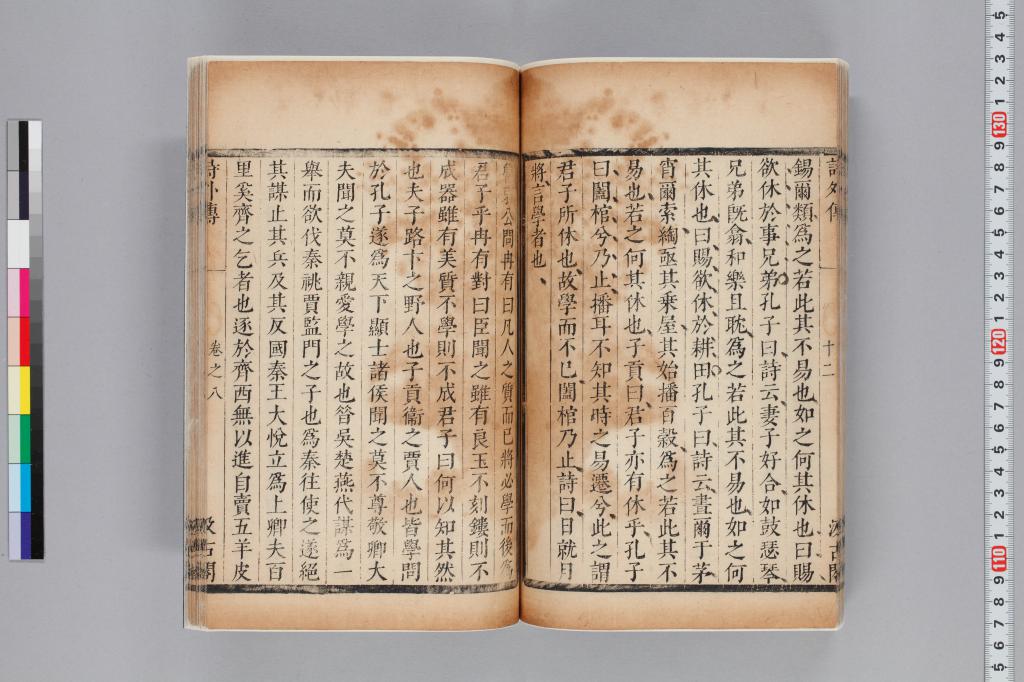 錫爾類爲之若此其不易也如之何其休也曰賜
欲休於事兄弟孔子曰詩云妻子好合如鼓瑟琴
兄弟旣翕和樂且耽爲之若此其不易也如之何
其休也曰賜欲休於耕田孔子曰詩云晝爾于茅
宵爾索綯亟其乘屋其始播百穀爲之若此其不
易也若之何其休也子貢曰君子亦有休乎孔子
曰闔棺兮乃止播耳不知其時之易遷兮此之謂
君子所休也故學而不已闔棺乃止詩曰日就月
將言學者也
公問冉有曰凡人之質而已將必學而後爲
君子乎冉有對曰臣聞之雖有良玉不刻鏤則不
成器雖有美質不學則不成君子曰何以知其然
也夫子路卞之野人也子貢衞之賈人也皆學問
於孔子遂爲天下顯士諸侯聞之莫不尊敬卿大
夫聞之莫不親愛學之故也昔吳楚燕代謀爲一
舉而欲伐秦祧賈監門之子也爲秦往使之遂絕
其謀止其兵及其反國秦王大悅立爲上卿夫百
里奚齊之乞者也逐於齊西無以進自賣五羊皮
詩外傳
卷之八
汲古閣
詩外傳
十二
汲古閣
1 2 3 4 5 6 7 8 9 110 1 2 3 4 5 6 7 8 9 120 1 2 3 4 5 6 7 8 9 130 1 2 3 4 5